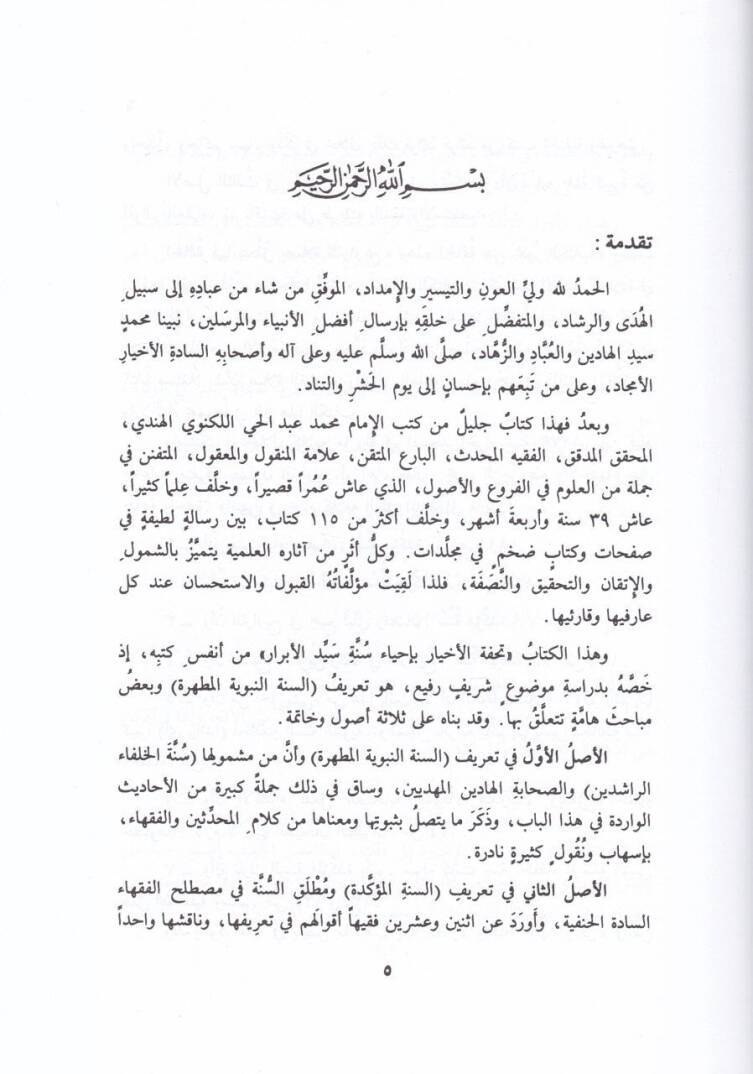 بسم الله الرحمن الرحيم
تقدمة :
الحمدُ لله وليِّ العونِ والتيسيرِ والإمداد، الموفِّقِ من شاء من عبادِهِ إلى سبيلِ
الهُدَى والرشاد، والمتفضِّلِ على خلقِهِ بإرسالِ أفضلِ الأنبياء والمرسَلين، نبينا محمدٍ
سيدِ الهادين والعُبَّادِ والزُّهَّاد، صلَّى الله وسلَّم عليه وعلى آله وأصحابِهِ السادةِ الأخيارِ
الأمجاد، وعلى من تَبِعَهم بإحسانٍ إلى يوم الحَشْرِ والتناد.
وبعدُ فهذا كتابٌ جليلٌ من كتب الإمام محمد عبد الحي اللكنوي الهندي،
المحقق المدقق، الفقيه المحدث، البارع المتقن، علامة المنقول والمعقول، المتفنن في
جملة من العلوم في الفروع والأصول، الذي عاش عُمُراً قصيراً، وخلَّف عِلماً كثيراً،
عاش ٣٩ سنة وأربعةَ أشهر، وخلَّف أكثرَ من ١١٥ كتاب، بين رسالةٍ لطيفةٍ في
صفحات وكتابٍ ضخمٍ في مجلَّدات. وكلُّ أثَرٍ من آثاره العلمية يتميَّزُ بالشمولِ
والإتقان والتحقيق والنَّصَفَة، فلذا لَقِيَتْ مؤلَّفاتُهُ القبول والاستحسان عند كل
عارفيها وقارئيها.
وهذا الكتابُ «تحفة الأخيار بإحياء سُنَّةِ سَيِّد الأبرار» من أنفسِ كتبِه، إذ
خَصَّهُ بدراسةِ موضوعٍ شريفٍ رفيع، هو تعريفُ (السنة النبوية المطهرة) وبعضُ
مباحثَ هامَّةٍ تتعلَّقُ بها. وقد بناه على ثلاثة أصول وخاتمة.
الأصلُ الأوَّلُ في تعريف (السنة النبوية المطهرة) وأنَّ من مشمولها (سُنَّةَ الخلفاء
الراشدين) والصحابةِ الهادين المهديين، وساق في ذلك جملةً كبيرة من الأحاديث
الواردة في هذا الباب، وذَكَرَ ما يتصلُ بثبوتِها ومعناها من كلامِ المحدِّثين والفقهاء،
بإسهاب ونُقُولٍ كثيرةٍ نادرة.
الأصلُ الثاني في تعريفِ (السنةِ المؤكَّدة) ومُطْلَقِ السُّنَّة في مصطلح الفقهاء
السادة الحنفية، وأورَدَ عن اثنين وعشرين فقيهاً أقوالَهم في تعرِيفها، وناقشها واحداً
٥